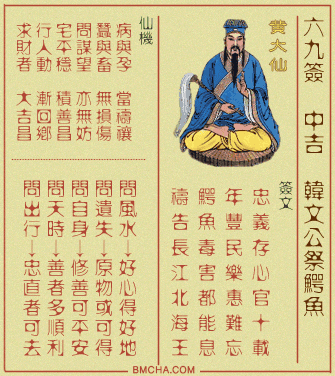 六九簽　中吉　韓文公祭鱷魚
黃大仙
簽文
忠義存心官十載
年豐民樂惠難忘
鱷魚毒害都能息
禱告長江北海王
仙機
病與孕　當禱禳
蠶與畜　無損傷
問謀望　亦無妨
宅平穩　積善昌
行人動　漸回鄉
求財者　大吉昌
問風水→好心得好地
問遺失→原物或可得
問自身→修善可平安
問天時→善者多順利
問出行→忠直者可去
BMCHA.COM